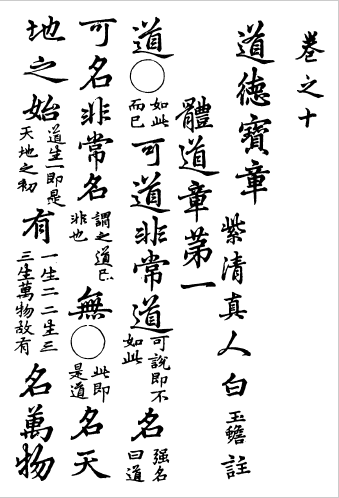 卷之十
道德寶章
紫清真人白玉蟾註
體道章苐一
道○如此而已可道非常道可說即不如此名强名曰道
可名非常名謂之道已非也無○此即是道名天
地之始道生一即是天地之初有一生二二生三三生萬物故有名萬物